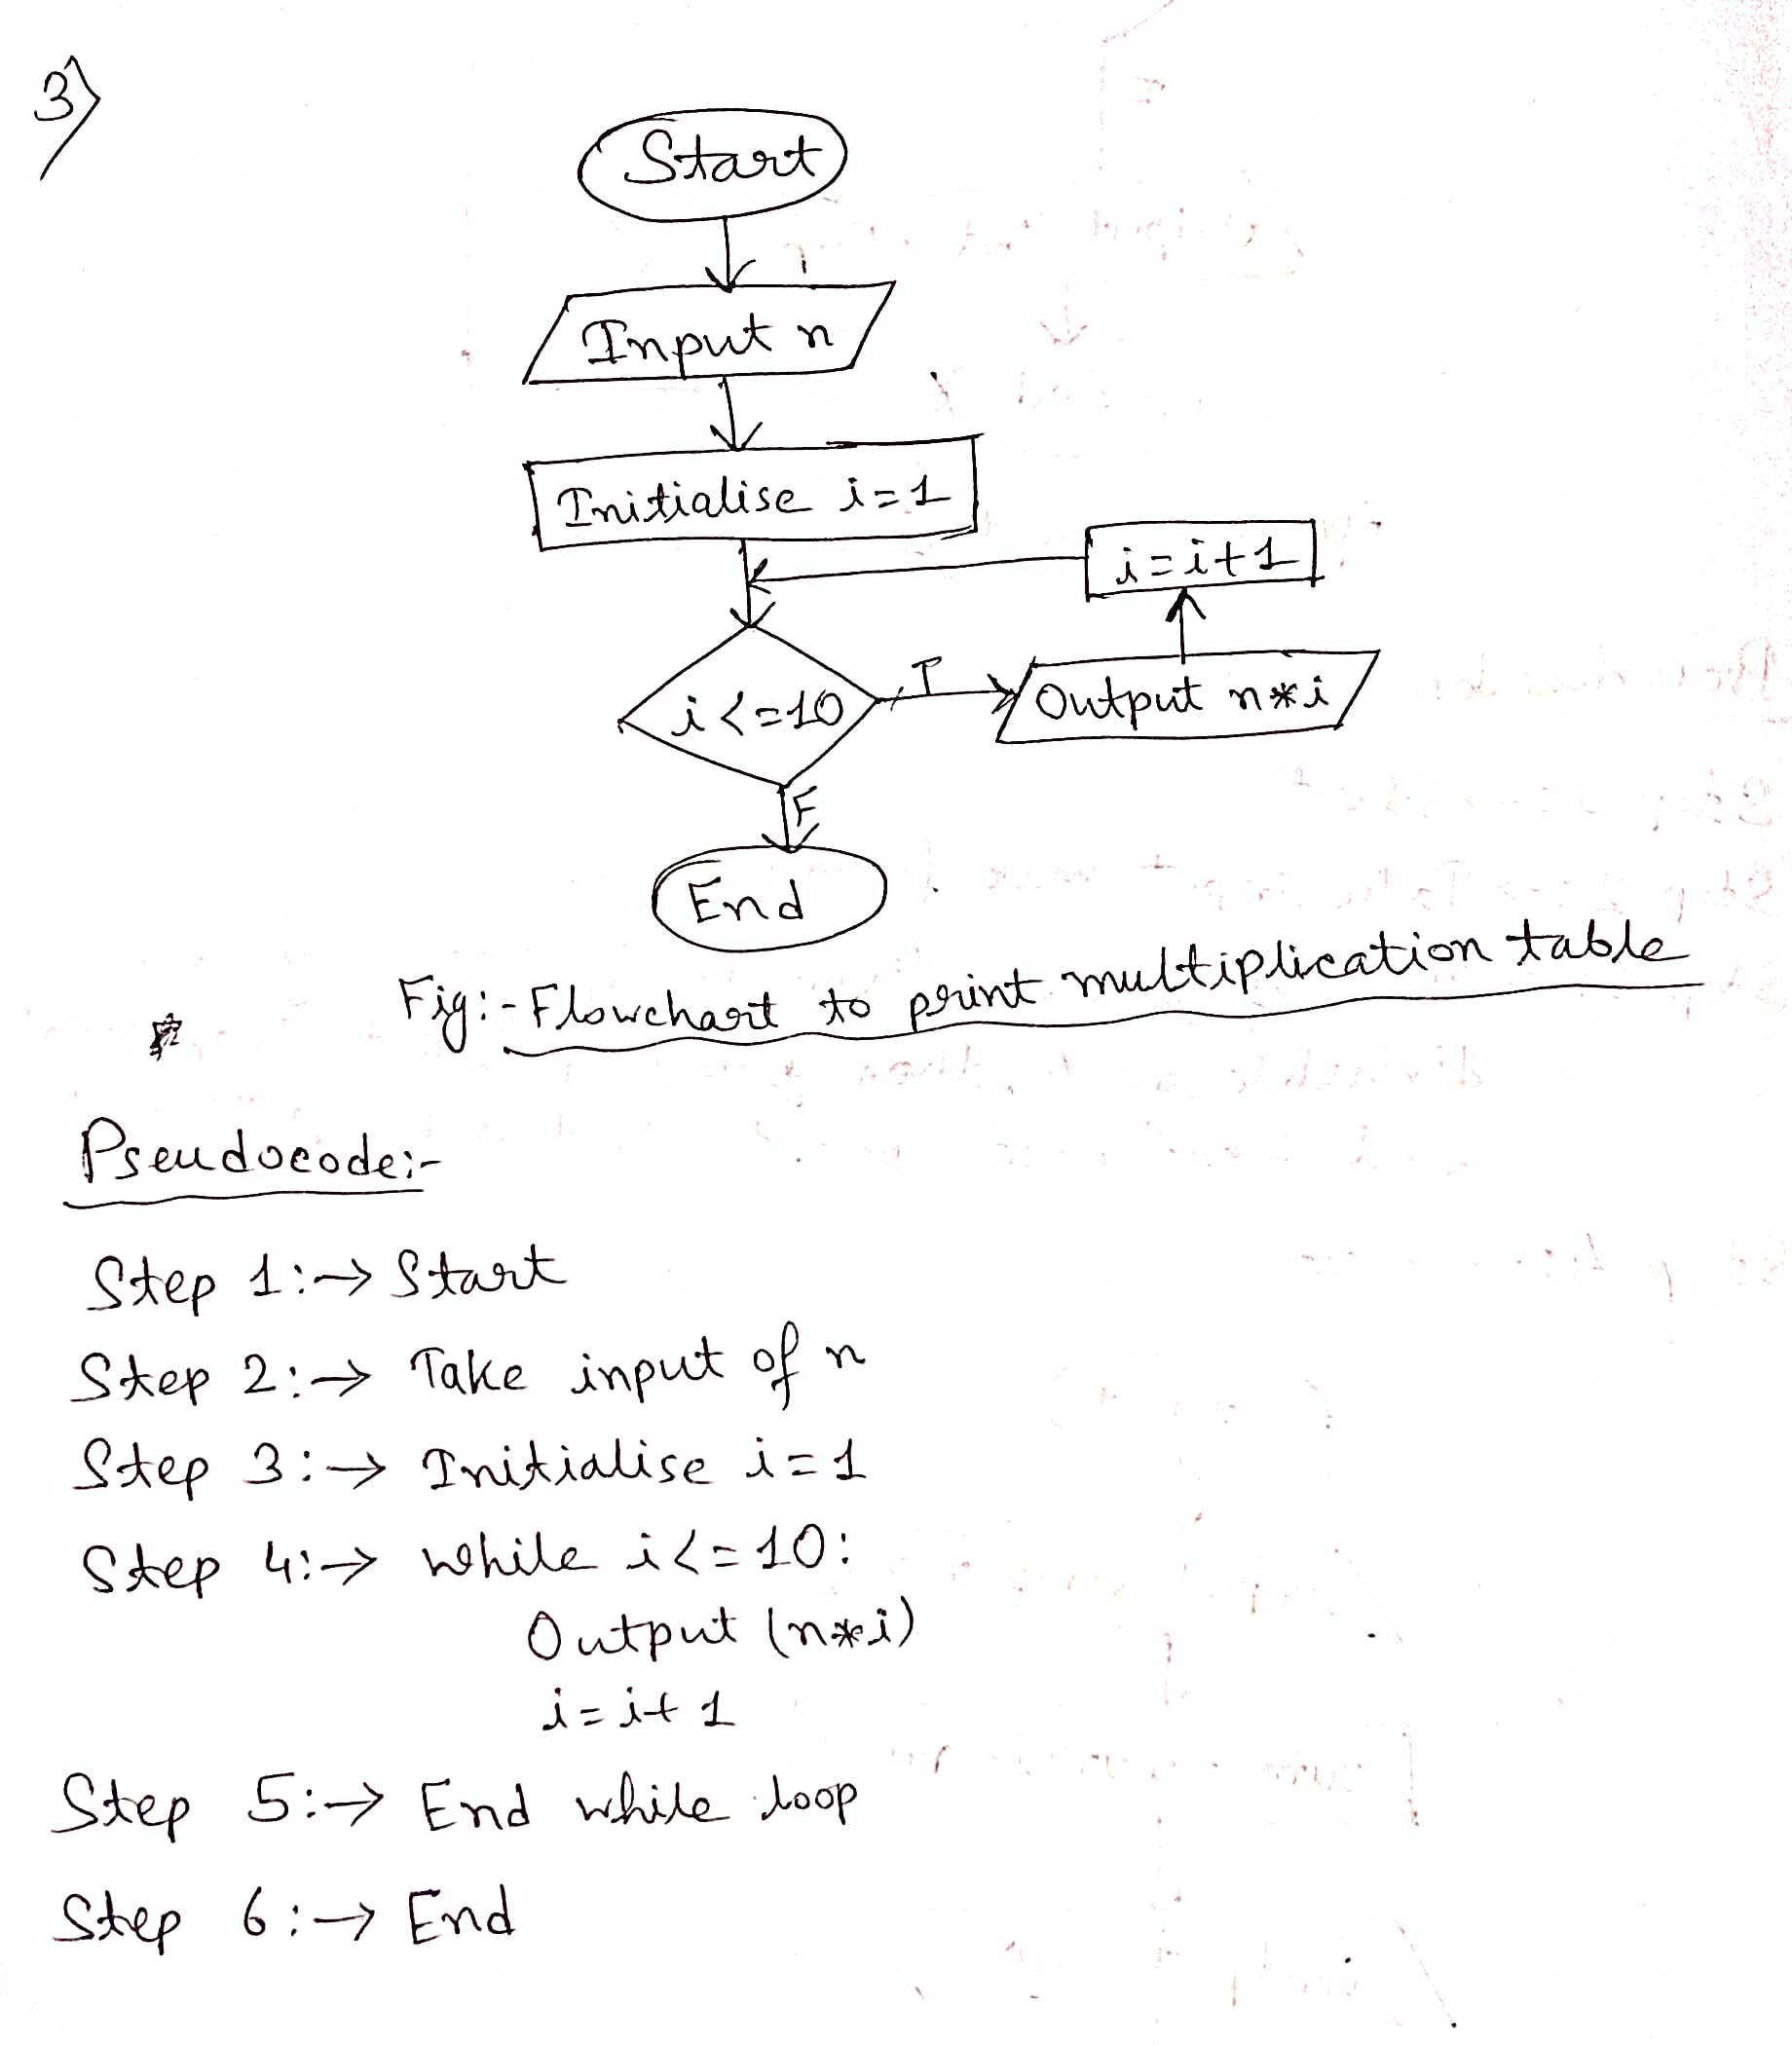 3)
Start
Input n
Initialise i=1
i=i+1
i<=10
T
Output n*i
F
End
Fig:- Flowchart to print multiplication table
Pseudocode:-
Step 1:→ Start
Step 2:→ Take input of n
Step 3:→ Initialise i=1
Step 4:→ While i<=10:
Output (n*i)
i=i+1
Step 5:→ End while loop
Step 6:→ End